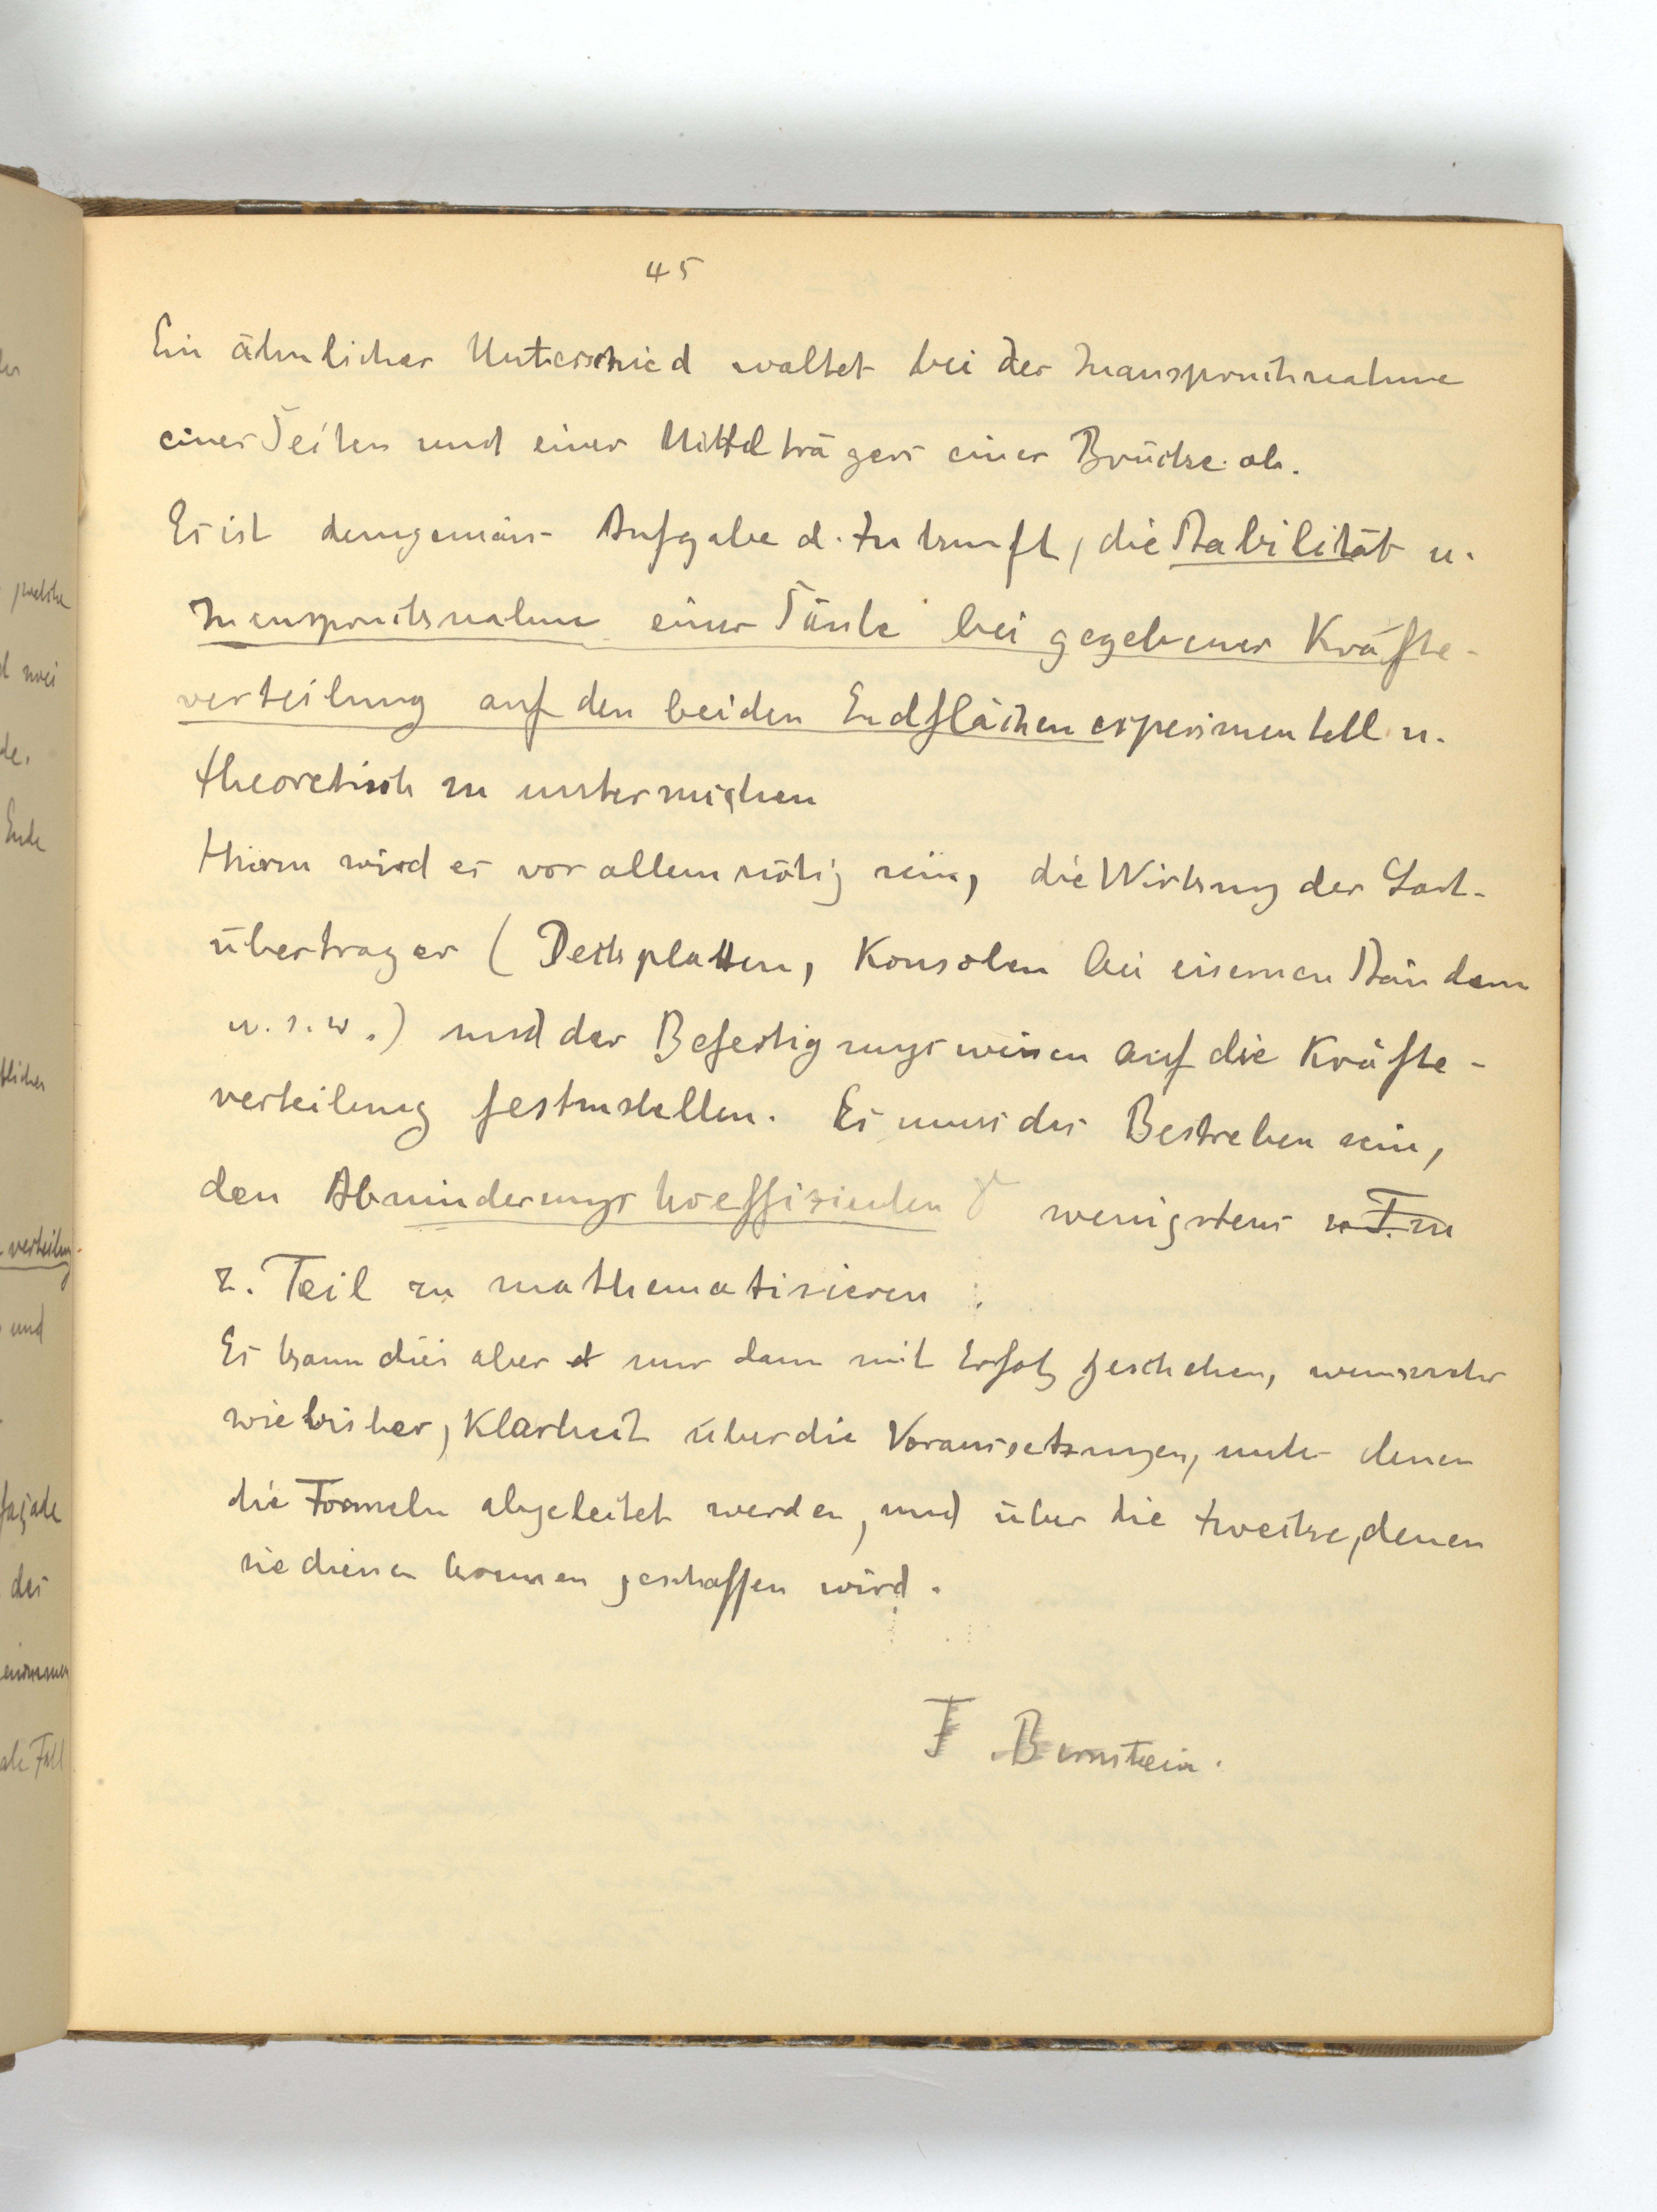 45
Ein ähnlicher Unterschied waltet bei der Inanspruchnahme
eines Seiten und eines Mittelträgers einer Brücke ob.
Es ist demgemäss Aufgabe d. Zukunft, die Stabilität u.
Inanspruchsnahme einer Säule bei gegebener Kräfte-
verteilung auf den beiden Endflächen experimentell u.
theoretisch zu untersuchen
Hierzu wird es vor allem nötig sein, die Wirkung der Last-
übertrager ( Deckplatten, Konsolen bei eisernen Ständern
u. s. w. ) und der Befestigungsweisen auf die Kräfte-
verteilung festzustellen. Es muss das Bestreben sein,
den Abminderungskoeffizienten γ wenigstens
z. Teil zu mathematisieren.
Es kann dies aber nur dann mit Erfolg geschehen, wenn mehr
wie bisher, Klarheit über die Voraussetzungen, unter denen
die Formeln abgeleitet werden, und über die Zwecke, denen
sie dienen können geschaffen wird.
F Bernstein.
welche
Ende
verteilung
und
façade
des
Fall